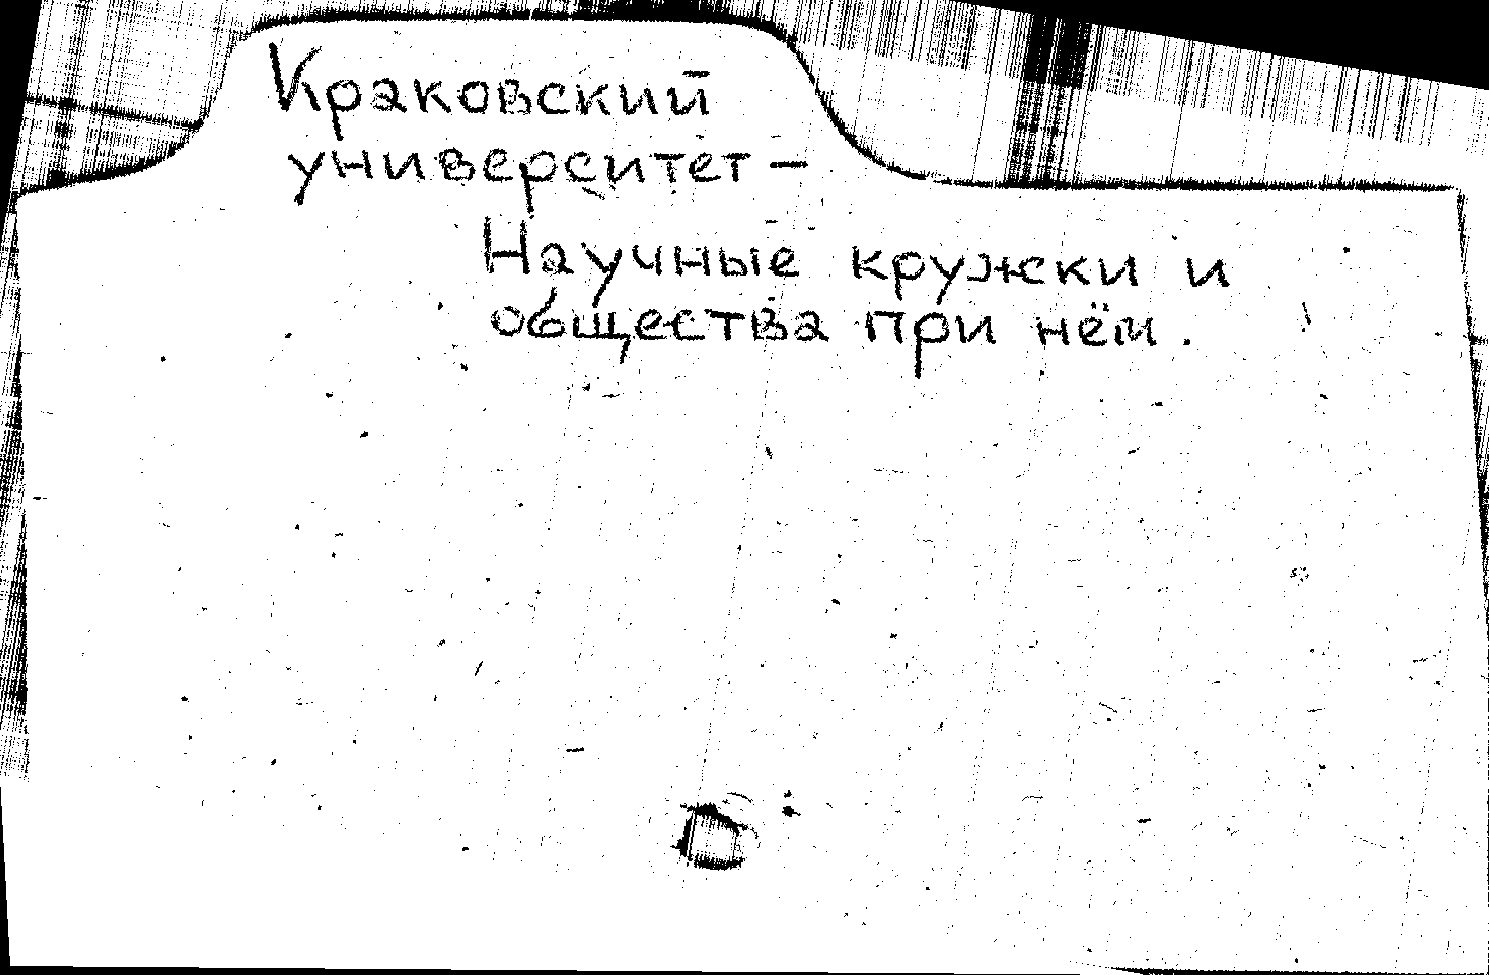 Краковский
университет –
Научные кружки и
общества при нём.